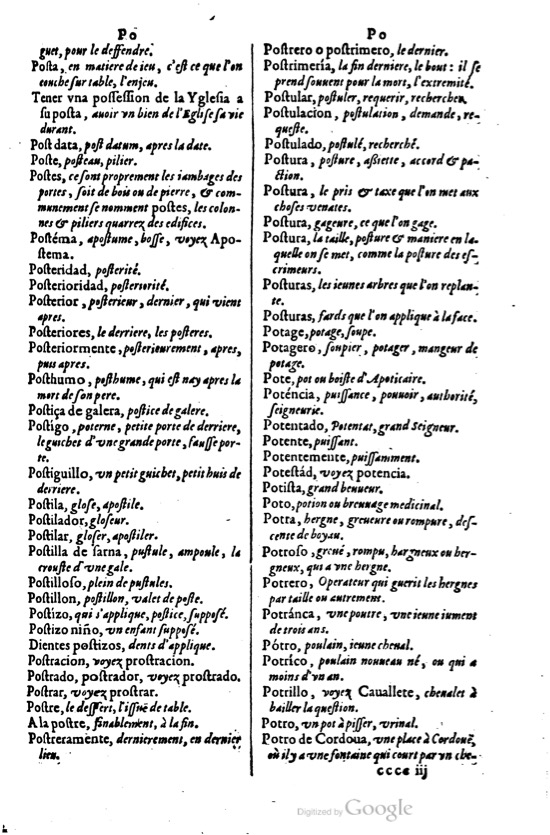 Po
guet, pour le deffendre.
Posta, en matiere de ieu, c'est ce que l'on
couche sur table, l'enjeu.
Tener vna possession de la Yglesia a
su posta, auoir vn bien de l'Eglise sa vie
durant.
Post data, post datum, apres la date.
Poste, posteau, pilier.
Postes, ce sont proprement les iambages des
portes, soit de bois ou de pierre, & com-
munement se nomment postes, les colon-
nes & piliers quarrez des edifices.
Postéma, apostume, bosse, voyez Apo-
stema.
Posteridad, posterité.
Posterioridad, posteriorité.
Posterior, posterieur, dernier, qui vient
apres.
Posteriores, le derriere, les posteres.
Posteriormente, posterieurement, apres,
puis apres.
Posthumo, posthume, qui est nay apres la
mort de son pere.
Postiça de galera, postice de galere.
Postigo, poterne, petite porte de derriere,
le guichet d'vne grande porte, fausse por-
te.
Postiguillo, vn petit guichet, petit huis de
derriere.
Postila, glose, apostile.
Postilador, gloseur.
Postilar, gloser, apostiler.
Postilla de sarna, pustule, ampoule, la
crouste d'vne gale.
Postilloso, plein de pustules.
Postillon, postillon, valet de poste.
Postizo, qui s'applique, postice, supposé.
Postizo niño, vn enfant supposé.
Dientes postizos, dents d'applique.
Postracion, voyez prostracion.
Postrado, postrador, voyez prostrado.
Postrar, voyez prostrar.
Postre, le dessert, l'issuë de table.
A la postre, finablement, à la fin.
Postreramente, dernierement, en dernier
lieu.
Po
Postrero o postrimero, le dernier.
Postrimería, la fin derniere, le bout : il se
prend souuent pour la mort, l'extremité.
Postular, postuler, requerir, rechercher.
Postulacion, postulation, demande, re-
queste.
Postulado, postulé, recherché.
Postura, posture, assiette, accord & pa-
ction.
Postura, le pris & taxe que l'on met aux
choses venales.
Postura, gageure, ce que l'on gage.
Postura, la taille, posture & maniere en la-
quelle on se met, comme la posture des es-
crimeurs.
Posturas, les ieunes arbres que l'on replan-
te.
Posturas, fards que l'on applique à la face.
Potage, potage, soupe.
Potagero, soupier, potager, mangeur de
potage.
Pote, pot ou boiste d'Apoticaire.
Poténcia, puissance, pouuoir, authorité,
seigneurie.
Potentado, Potentat, grand Seigneur.
Potente, puissant.
Potentemente, puissamment.
Potestád, voyez potencia.
Potista, grand beuueur.
Poto, potion ou breuuage medicinal.
Potra, hergne, greueure ou rompure, des-
cente de boyau.
Potroso, greué, rompu, hargneux ou her-
gneux, qui a vne hergne.
Potrero, Operateur qui guerit les hergnes
par taille ou autrement.
Potránca, vne poutre, vne ieune iument
de trois ans.
Pótro, poulain, ieune cheual.
Potríco, poulain nouueau né, ou qui a
moins d'vn an.
Potrillo, voyez Cauallete, cheualet à
bailler la question.
Potro, vn pot à pisser, vrinal.
Potro de Cordoua, vne place à Cordouë,
où il y a vne fontaine qui court par vn che-
cccc iij
Digitized by Google